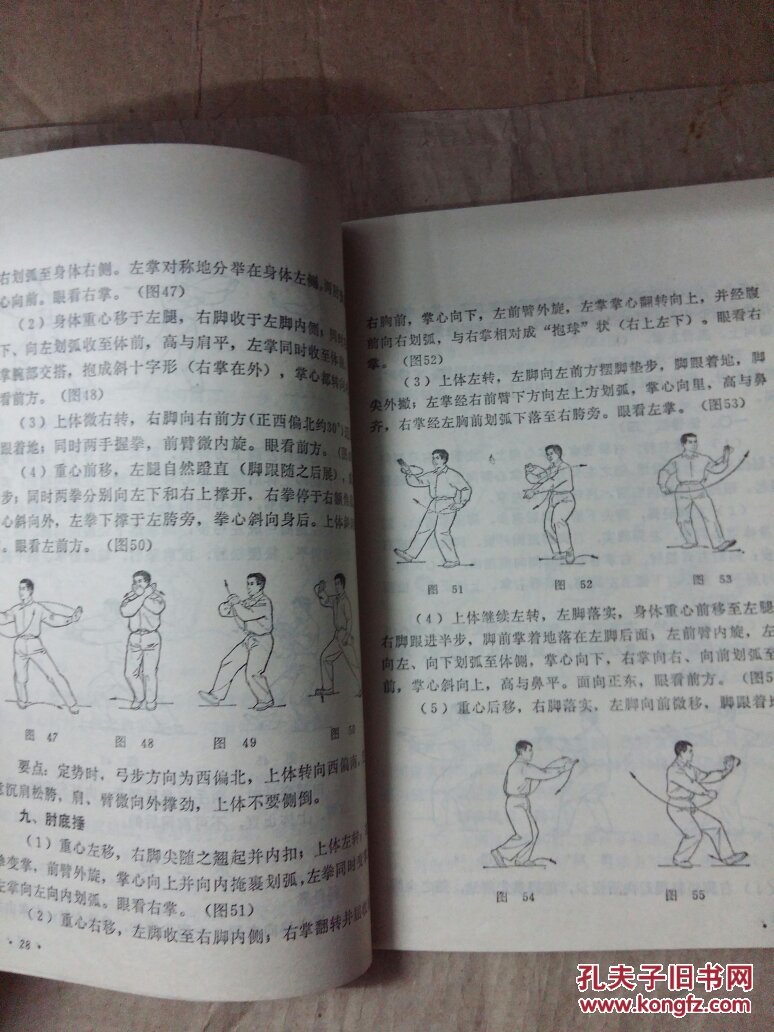 右划弧至身体右侧。左掌对称地分举在身体左侧,
心向前。眼看右掌。(图47)
(2)身体重心移于左腿,右脚收于左脚内侧;
下、向左划弧收至体前,高与肩平,左掌同时收至体
掌腕部交搭,抱成斜十字形(右掌在外),掌心都转向
看前方。(图48)
(3)上体微右转,右脚向右前方(正西偏北约30°)
跟着地;同时两手握拳,前臂微内旋。眼看前方。
(4)重心前移,左腿自然蹬直(脚跟随之后展),
步;同时两拳分别向左下和右上撑开,右拳停于右额
心斜向外,左拳下撑于左胯旁,拳心斜向身后。上体
。眼看左前方。(图50)
图 47
图 48
图 49
图 50
要点:定势时,弓步方向为西偏北,上体转向西偏南,
意沉肩松胯,肩、臂微向外撑劲,上体不要侧倒。
九、肘底捶
(1)重心左移,右脚尖随之翘起并内扣;上体左转;
拳变掌,前臂外旋,掌心向上并向内掩裹划弧,左拳同时变掌
左掌向左向内划弧。眼看右掌。(图51)
(2)重心右移,左脚收至右脚内侧;右掌翻转并屈收
· 28 ·
右胸前,掌心向下,左前臂外旋,左掌掌心翻转向上,并经腹
前向右划弧,与右掌相对成“抱球”状(右上左下)。眼看右
掌。(图52)
(3)上体左转,左脚向左前方摆脚垫步,脚跟着地,脚
尖外撇;左掌经右前臂下方向左上方划弧,掌心向里,高与鼻
齐,右掌经左胸前划弧下落至右胯旁。眼看左掌。(图53)
图 51
图 52
图 53
(4)上体继续左转,左脚落实,身体重心前移至左腿
右脚跟进半步,脚前掌着地落在左脚后面;左前臂内旋,左
向左、向下划弧至体侧,掌心向下,右掌向右、向前划弧
前,掌心斜向上,高与鼻平。面向正东,眼看前方。(图5
(5)重心后移,右脚落实,左脚向前微移,脚跟着地
图 54
图 55
孔夫子旧书网
www.kongfz.com